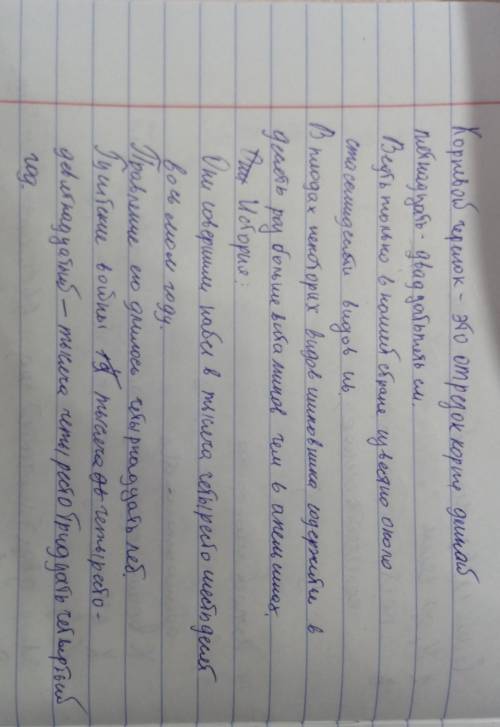 Корневой черенок – это отрезок корня длиной
пятнадцать - двадцать пять см.
Ведь только в нашей стране известно около
ста семидесяти видов ив.
В плодах некоторых видов шиповника содержится в
десять раз больше витаминов чем в апельсинах.
История:
Они совершили набег в тысяча четыреста шестьдесят
восьмом году.
Правление его длилось четырнадцать лет.
Гуситские войны тысяча четыресто-
девятнадцатый – тысяча четыресто тридцать четвёртый
год.